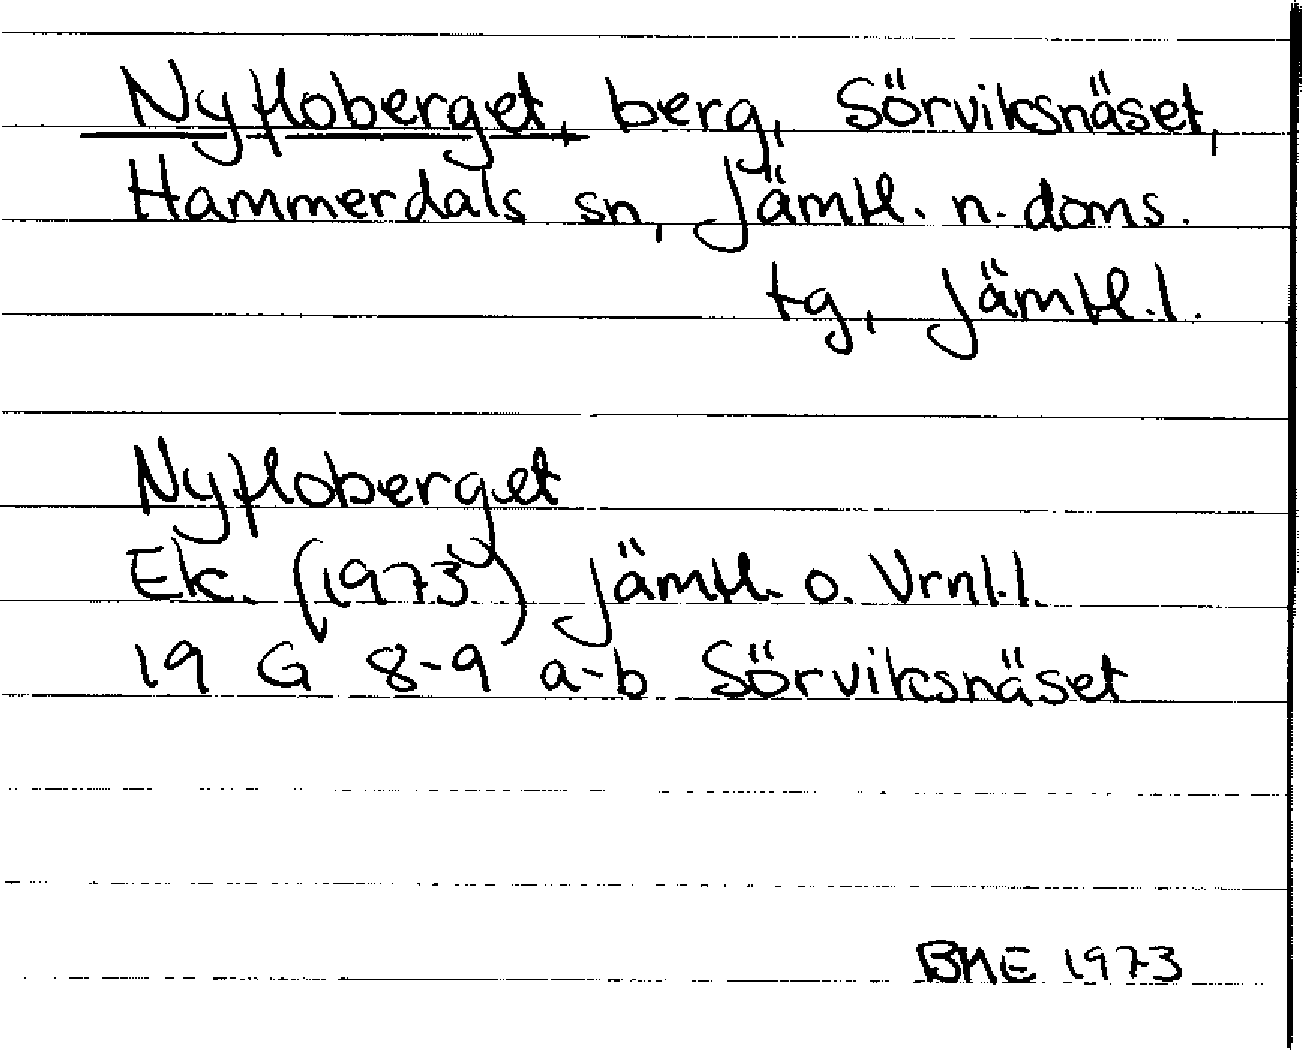 Nyfloberget, berg, Sörviksnäset,
Hammerdals sn, Jämtl. n. doms.
tg, Jämtl. l.
Nyfloberget
Ek. (1973) Jämtl. o. Vrnl. l.
19 G 8-9 a-b Sörviksnäset
BME 1973